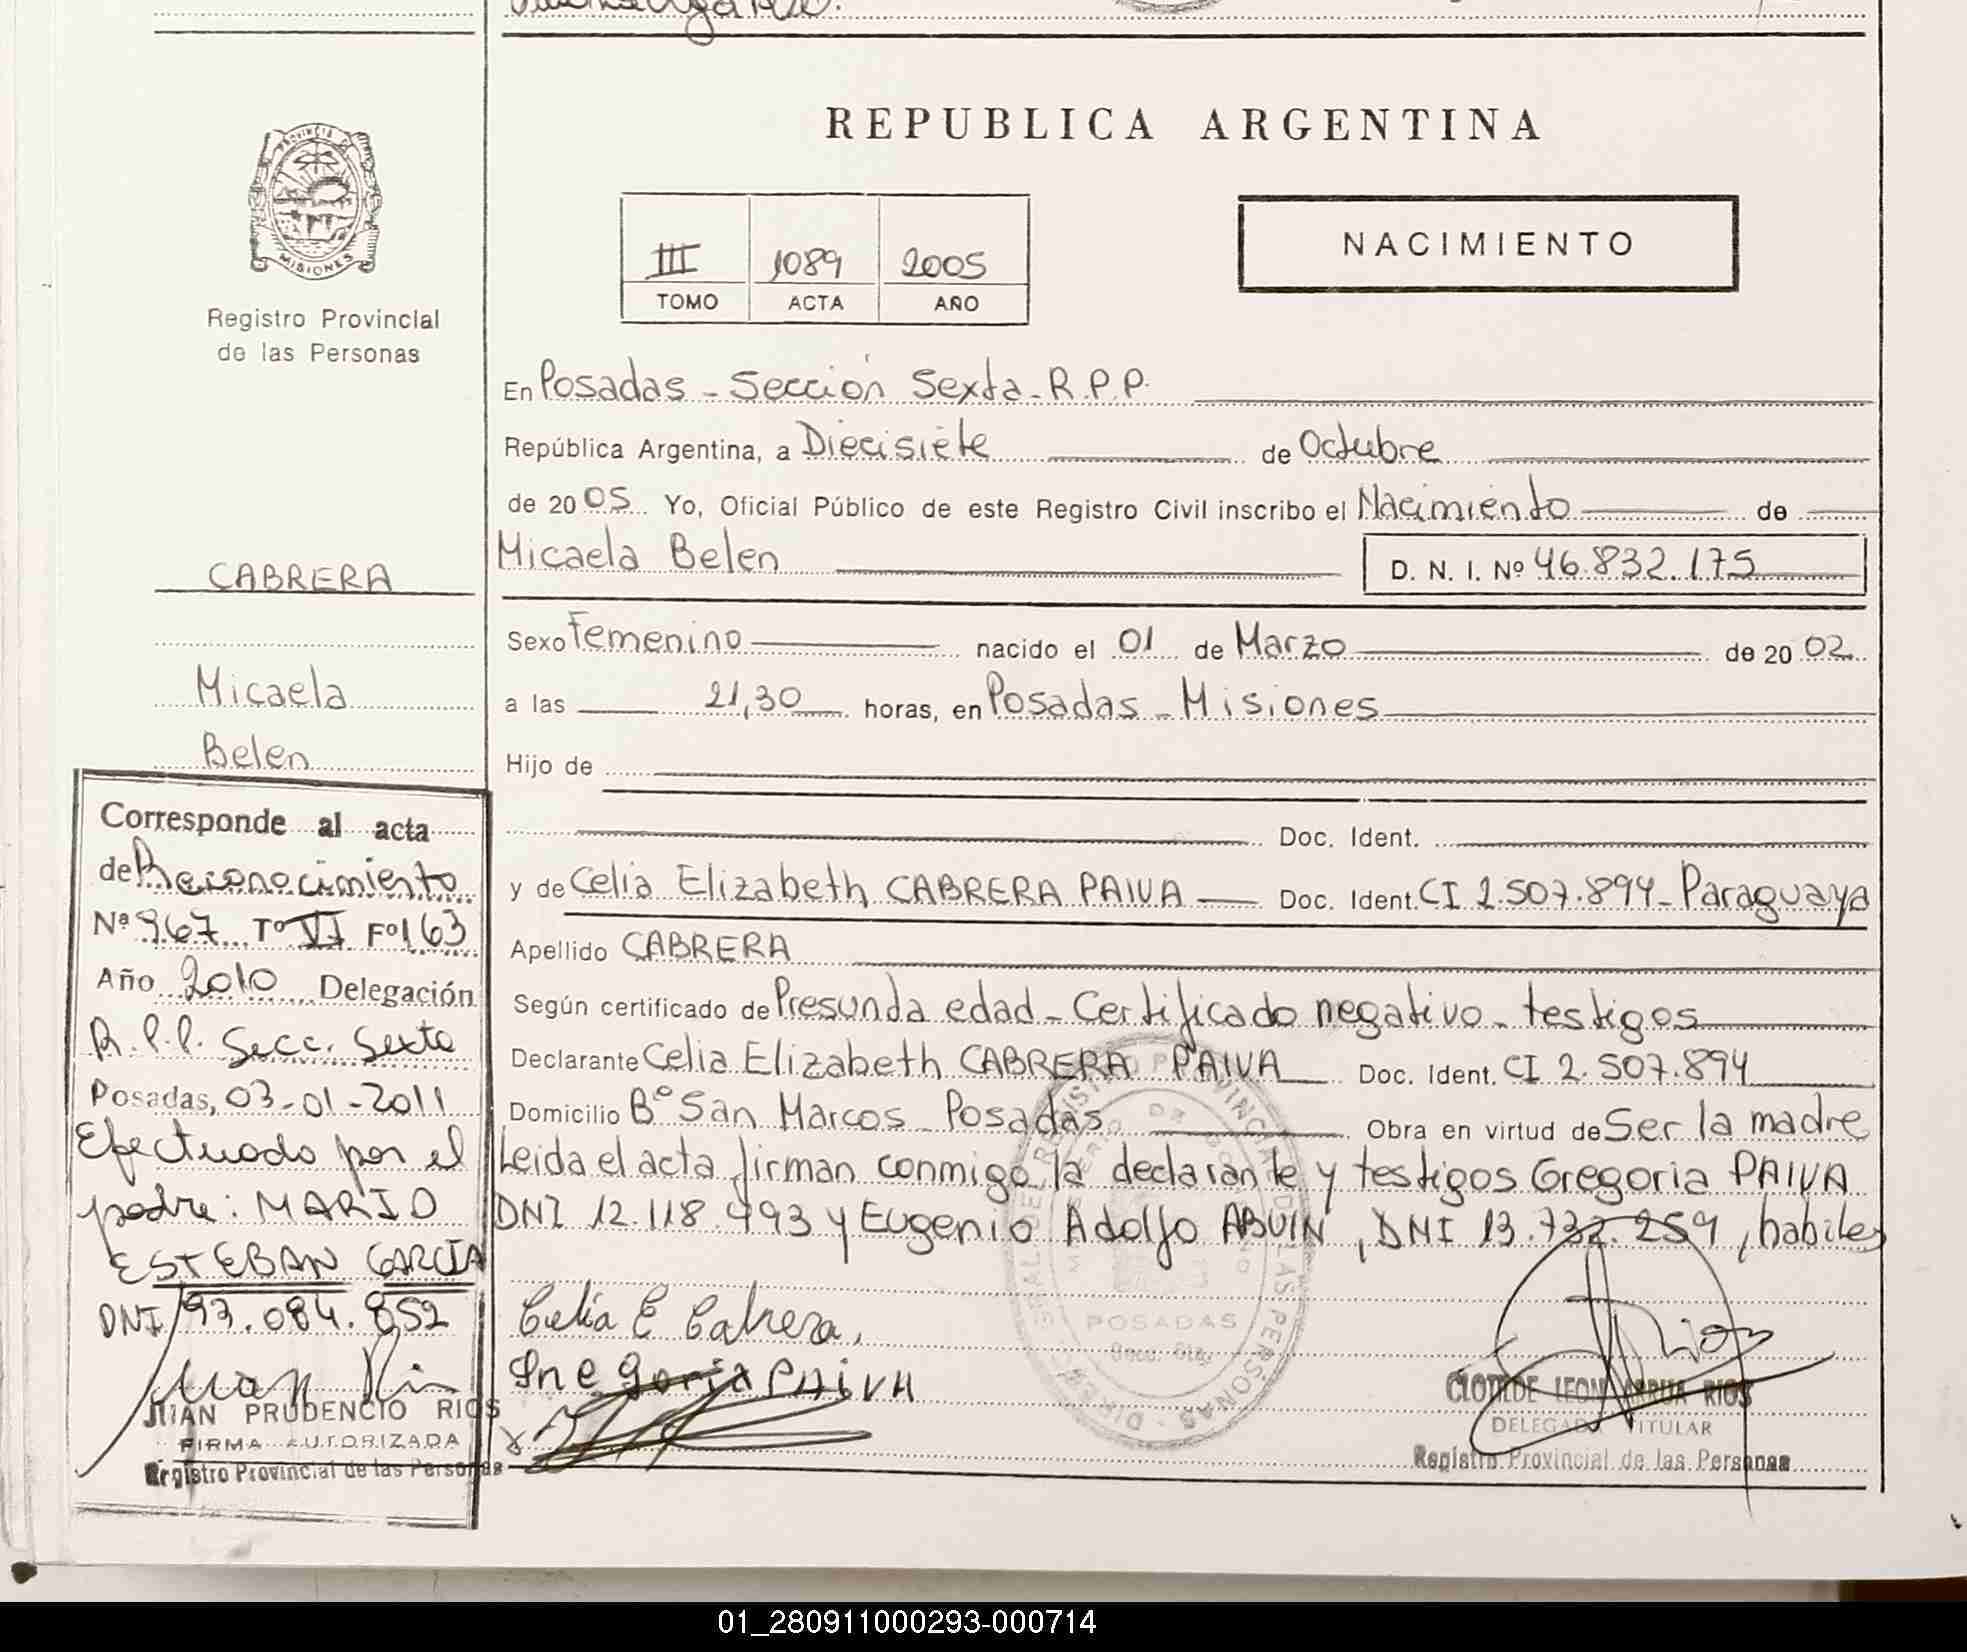 REPUBLICA ARGENTINA
PROVINCIA DE
MISIONES
Registro Provincial
de las Personas
III 1089 2005
TOMO ACTA AÑO
NACIMIENTO
En Posadas - Sección Sexta - R.P.P.
República Argentina, a Diecisiete de Octubre
de 2005 Yo, Oficial Público de este Registro Civil inscribo el Nacimiento de
Micaela Belen D. N. I. Nº 46.832.175
Sexo Femenino nacido el 01 de Marzo de 2002
a las 21,30 horas, en Posadas - Misiones
Hijo de
Doc. Ident.
y de Celia Elizabeth CABRERA PAIVA Doc. Ident. CI 2.507.894 - Paraguaya
Apellido CABRERA
Según certificado de Presunda edad - Certificado negativo - testigos
Declarante Celia Elizabeth CABRERA PAIVA Doc. Ident. CI 2.507.894
Domicilio Bº San Marcos - Posadas Obra en virtud de Ser la madre
Leida el acta firman conmigo la declarante y testigos Gregoria PAIVA
DNI 12.118.493 y Eugenio Adolfo ABUIN, DNI 13.732.259, habiles
Celia E Cabrera,
Gregoria PAIVA
CLOTILDE LEON ARRUA RIOS
DELEGADA TITULAR
Registro Provincial de las Personas
POSADAS
CABRERA
Micaela
Belen
Corresponde al acta
de Reconocimiento
Nº 967 Tº VI Fº 163
Año 2010 Delegación
R.P.P. Secc. Sexta
Posadas, 03-01-2011
Efectuado por el
padre: MARIO
ESTEBAN GARCÍA
DNI 93.084.852
JUAN PRUDENCIO RIOS
FIRMA AUTORIZADA
Registro Provincial de las Personas
01_280911000293-000714